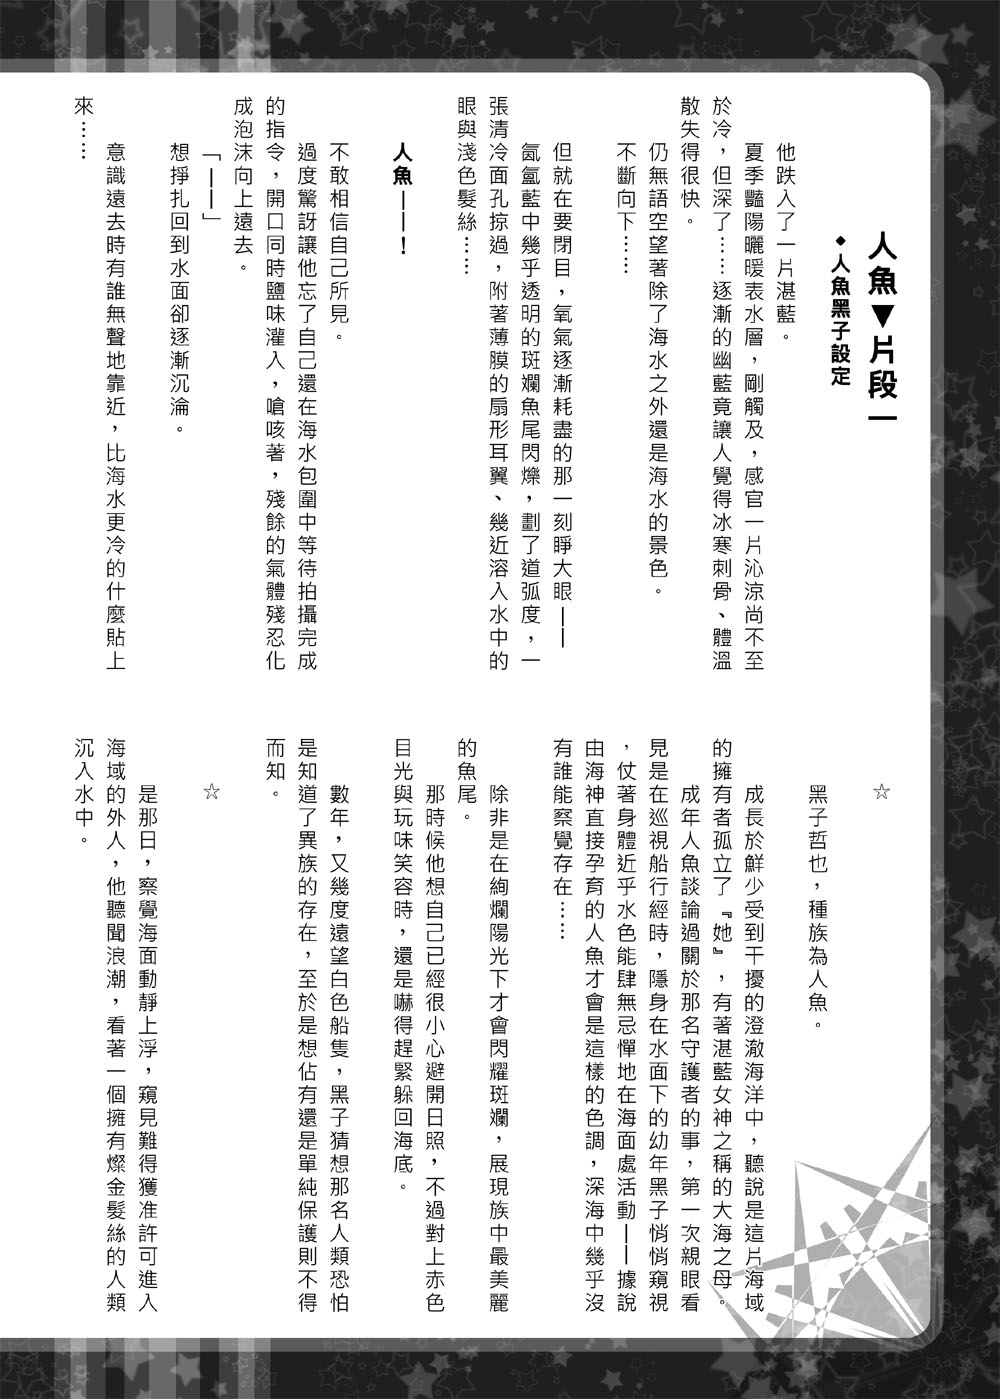 人魚▼片段一
◆人魚黑子設定
他跌入了一片湛藍。
夏季豔陽曬暖表水層，剛觸及，感官一片沁涼尚不至
於冷，但深了……逐漸的幽藍竟讓人覺得冰寒刺骨、體溫
散失得很快。
仍無語空望著除了海水之外還是海水的景色。
不斷向下……
但就在要閉目，氧氣逐漸耗盡的那一刻睜大眼——
氤氳藍中幾乎透明的斑斕魚尾閃爍，劃了道弧度，一
張清冷面孔掠過，附著薄膜的扇形耳翼、幾近溶入水中的
眼與淺色髮絲……
人魚——！
不敢相信自己所見。
過度驚訝讓他忘了自己還在海水包圍中等待拍攝完成
的指令，開口同時鹽味灌入，嗆咳著，殘餘的氣體殘忍化
成泡沫向上遠去。
「——」
想掙扎回到水面卻逐漸沉淪。
意識遠去時有誰無聲地靠近，比海水更冷的什麼貼上
來……
☆
黑子哲也，種族為人魚。
成長於鮮少受到干擾的澄澈海洋中，聽說是這片海域
的擁有者孤立了『她』，有著湛藍女神之稱的大海之母。
成年人魚談論過關於那名守護者的事，第一次親眼看
見是在巡視船行經時，隱身在水面下的幼年黑子悄悄窺視
，仗著身體近乎水色能肆無忌憚地在海面處活動——據說
由海神直接孕育的人魚才會是這樣的色調，深海中幾乎沒
有誰能察覺存在……
除非是在絢爛陽光下才會閃耀斑斕，展現族中最美麗
的魚尾。
那時候他想自己已經很小心避開日照，不過對上赤色
目光與玩味笑容時，還是嚇得趕緊躲回海底。
數年，又幾度遠望白色船隻，黑子猜想那名人類恐怕
是知道了異族的存在，至於是想佔有還是單純保護則不得
而知。
☆
是那日，察覺海面動靜上浮，窺見難得獲准許可進入
海域的外人，他聽聞浪潮，看著一個擁有燦金髮絲的人類
沉入水中。